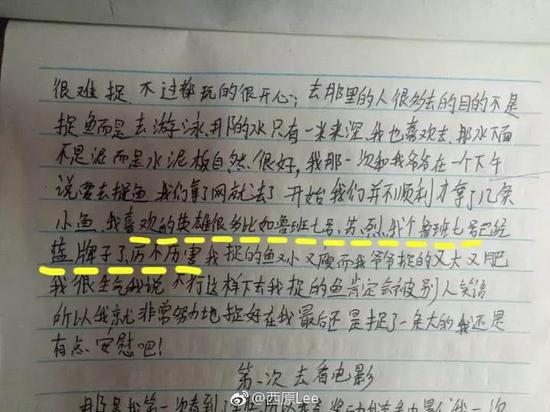 很难捉,不过都玩的很开心;去那里的人很多去的目的不是
捉鱼而是去游泳,那的水只有一米来深,我也喜欢去,那水下面
不是泥而是水泥板自然很好,我那一次和我爷爷在一个下午
说要去捉鱼,我们拿了网就去了,开始我们并不顺利才拿了几条
小鱼,我喜欢的英雄很多比如鲁班七号,先烈,我个鲁班七号已经
蓝牌子了,历不历害,我捉的鱼又小又瘦而我爷爷捉的又大又肥
我很生气我说,不行这样下去我捉的鱼肯定会被别人笑话
所以我就非常努力地捉好在我最后还是捉了一条大的我还是
有点安慰吧!
第一次去看电影
@西原Lee